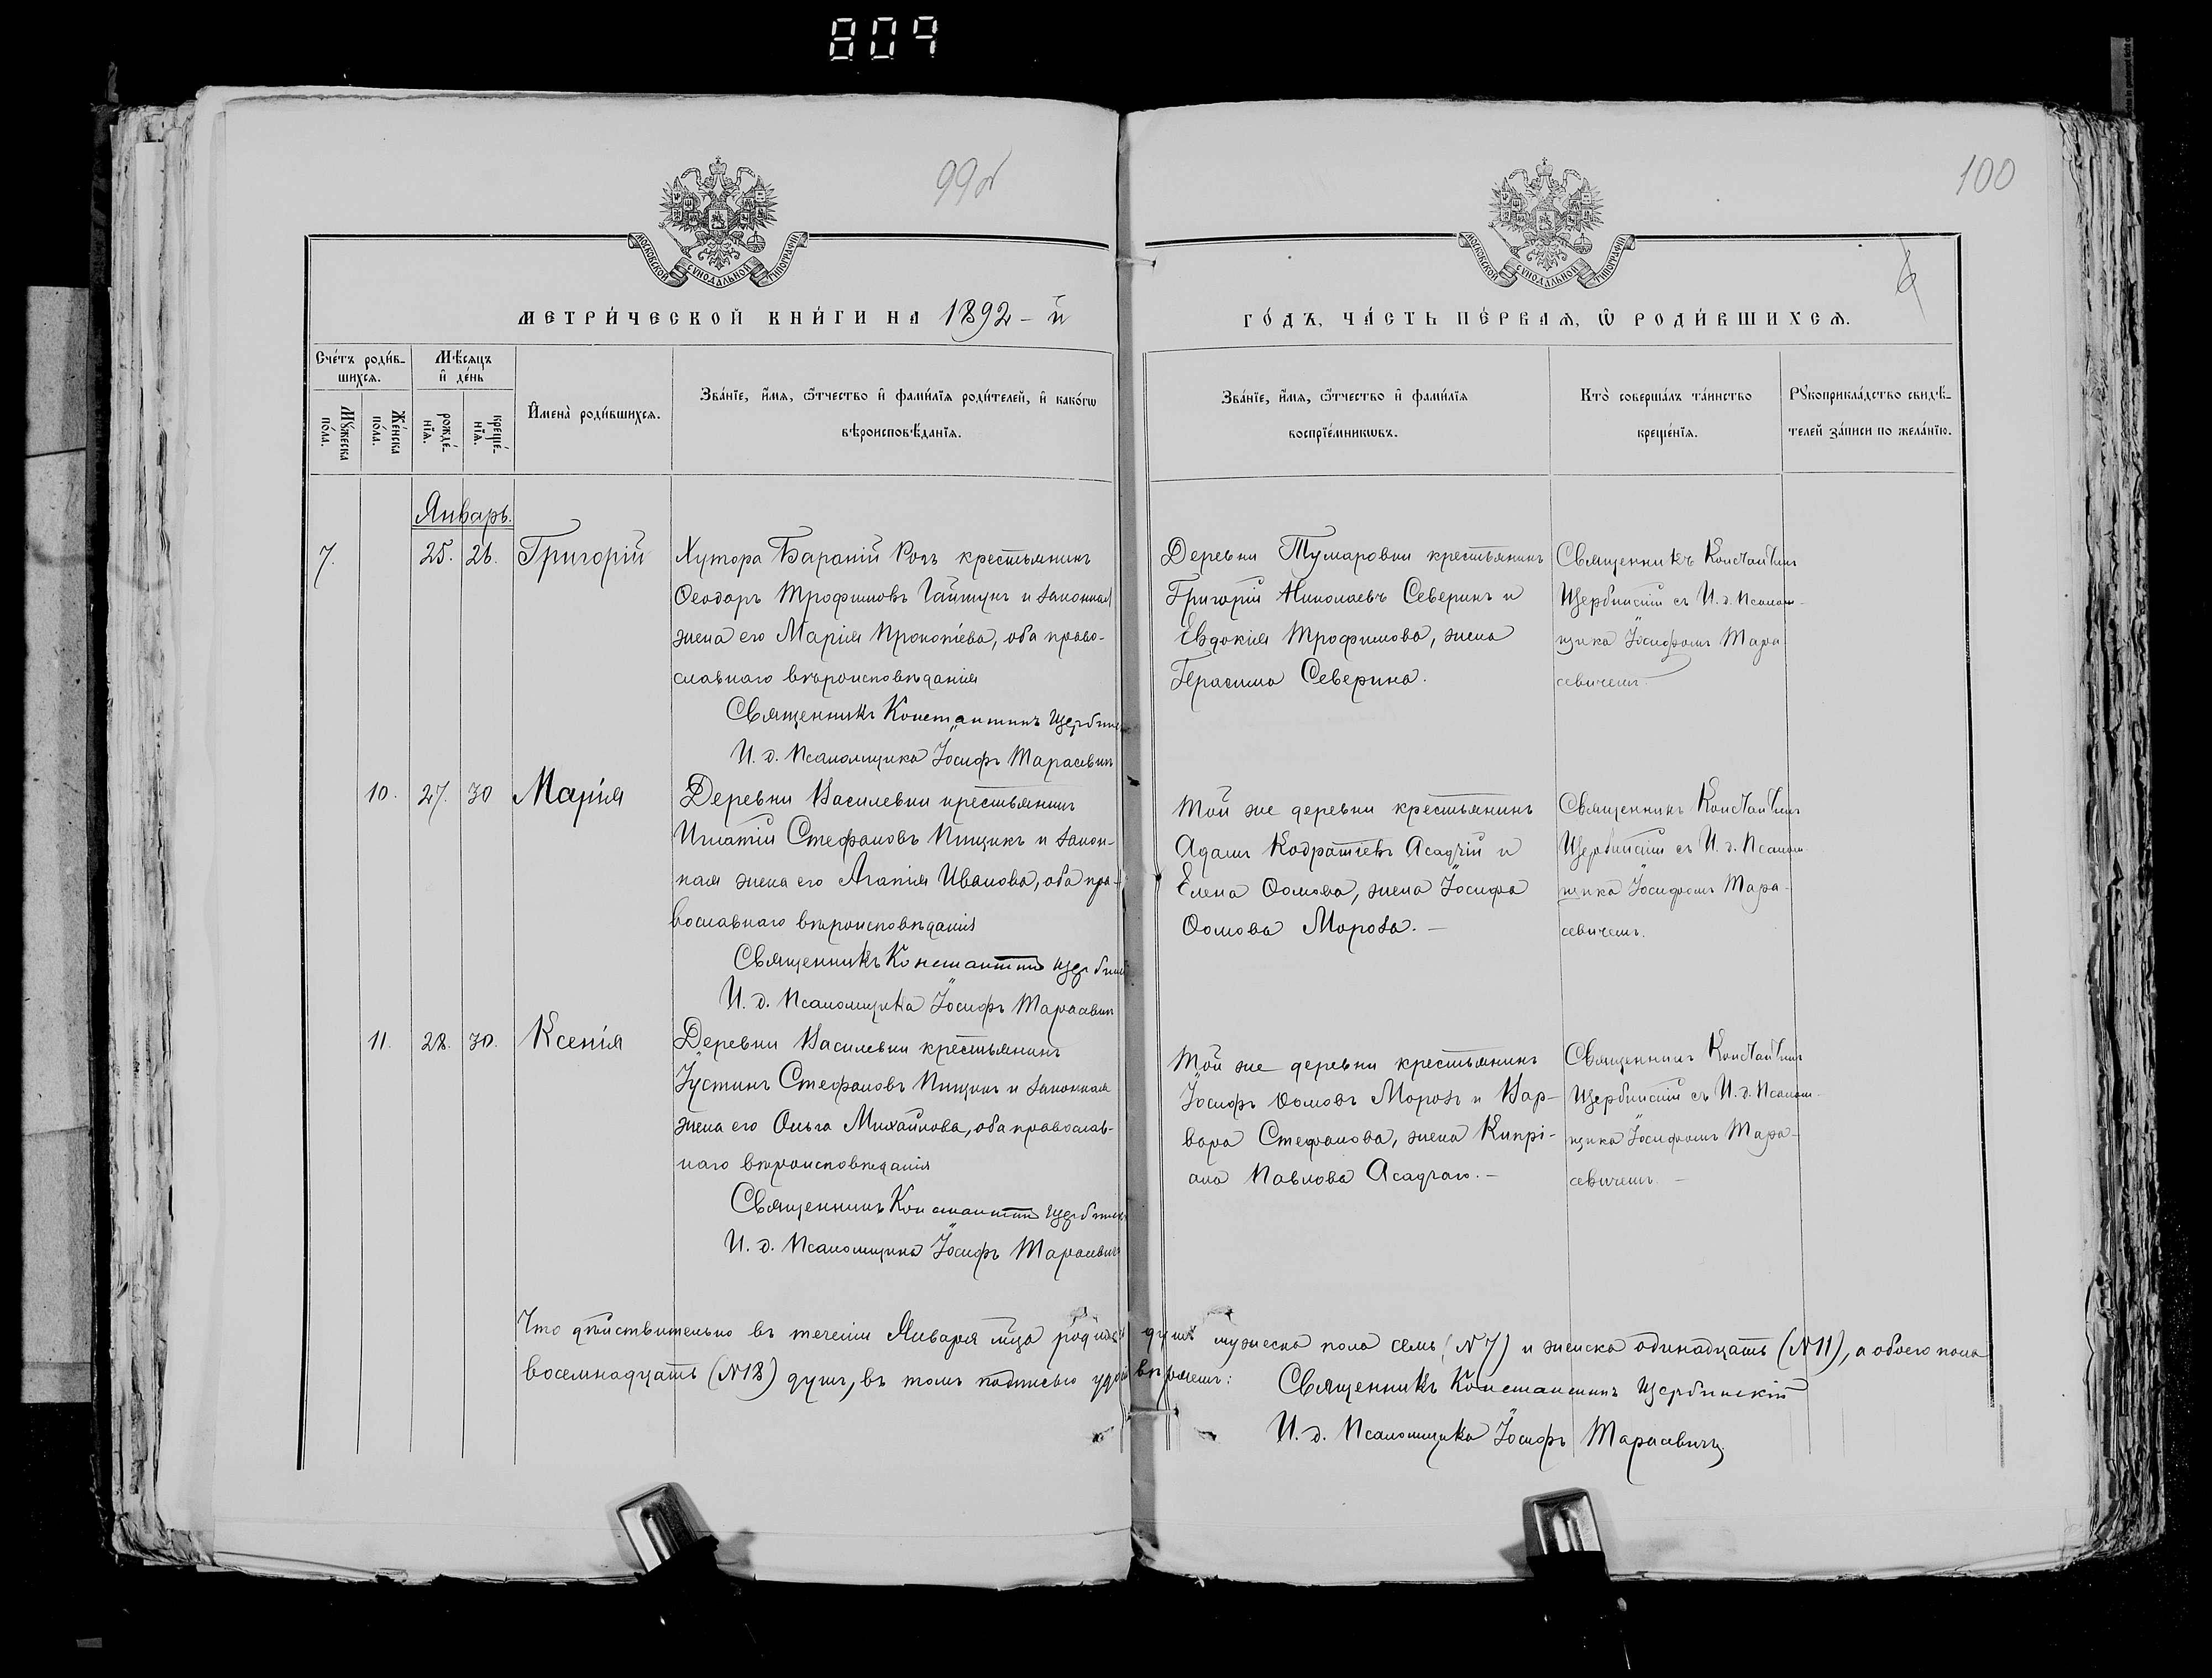 809
99об
100
МОСКОВСКОЙ СѴНОДАЛЬНОЙ ТИПОГРАФІИ
МОСКОВСКОЙ СѴНОДАЛЬНОЙ ТИПОГРАФІИ
6
МЕТРИ́ЧЕСКОЙ КНИ́ГИ НА 1892-й
ГО́ДЪ, ЧА́СТЬ ПЕ́РВАѦ, Ѡ҆ РОДИ́ВШИХСѦ.
Сче́тъ роди́в-
шихсѧ.
Мѣ́сѧцъ
и҆ де́нь
Мꙋ́жеска
по́ла.
Же́нска
по́ла.
рожде́-
нїѧ.
креще́-
нїѧ.
И҆мена̀ роди́вшихсѧ.
Зва́нїе, и҆́мѧ, ѻ҆́тчество и҆ фами́лїѧ роди́телей, и҆ како́гѡ
вѣроисповѣ́данїѧ.
Зва́нїе, и҆́мѧ, ѻ҆́тчество и҆ фами́лїѧ
воспрїе́мникѡвъ.
Кто̀ соверша́лъ та́инство
креще́нїѧ.
Рꙋкоприкла́дство свидѣ́-
телей за́писи по жела́нїю.
Январь.
7. 25. 26. Григорій
Хутора Бараній Рогъ крестьянинъ
Ѳеодоръ Трофимовъ Гайтукъ и законная
жена его Марія Прокопіева, оба право-
славнаго вѣроисповѣданія
Священникъ Константинъ Щербинскій
И. д. Псаломщика Іосифъ Тарасевичъ
Деревни Тумаровки крестьянинъ
Григорій Николаевъ Северинъ и
Евдокія Трофимова, жена
Герасима Северина.
Священникъ Константинъ
Щербинскій съ И. д. Псалом-
щика Іосифомъ Тара-
севичемъ.
10. 27. 30 Марія
Деревни Василевки крестьянинъ
Игнатій Стефановъ Пищикъ и закон-
ная жена его Агапія Иванова, оба пра-
вославнаго вѣроисповѣданія
Священникъ Константинъ Щербинскій
И. д. Псаломщика Іосифъ Тарасевичъ
Той же деревни крестьянинъ
Адамъ Кодратіевъ Асадчій и
Елена Ѳомова, жена Іосифа
Ѳомова Мороза. —
Священникъ Константинъ
Щербинскій съ И. д. Псалом-
щика Іосифомъ Тара-
севичемъ.
11. 28. 30. Ксенія
Деревни Василевки крестьянинъ
Іустинъ Стефановъ Пищикъ и законная
жена его Ольга Михайлова, оба православ-
наго вѣроисповѣданія
Священникъ Константинъ Щербинскій
И. д. Псаломщика Іосифъ Тарасевичъ
Той же деревни крестьянинъ
Іосифъ Ѳомовъ Морозъ и Вар-
вара Стефанова, жена Кипрі-
ана Павлова Асадчаго. —
Священникъ Константинъ
Щербинскій съ И. д. Псалом-
щика Іосифомъ Тара-
севичемъ. —
Что дѣйствительно въ теченіи Января мца родилось душъ мужеска пола семь (№ 7) и женска одинадцать (№ 11), а обоего пола
восемнадцать (№ 18) душъ, въ томъ подписью удостовѣряемъ:
Священникъ Константинъ Щербинскій
И. д. Псаломщика Іосифъ Тарасевичъ.